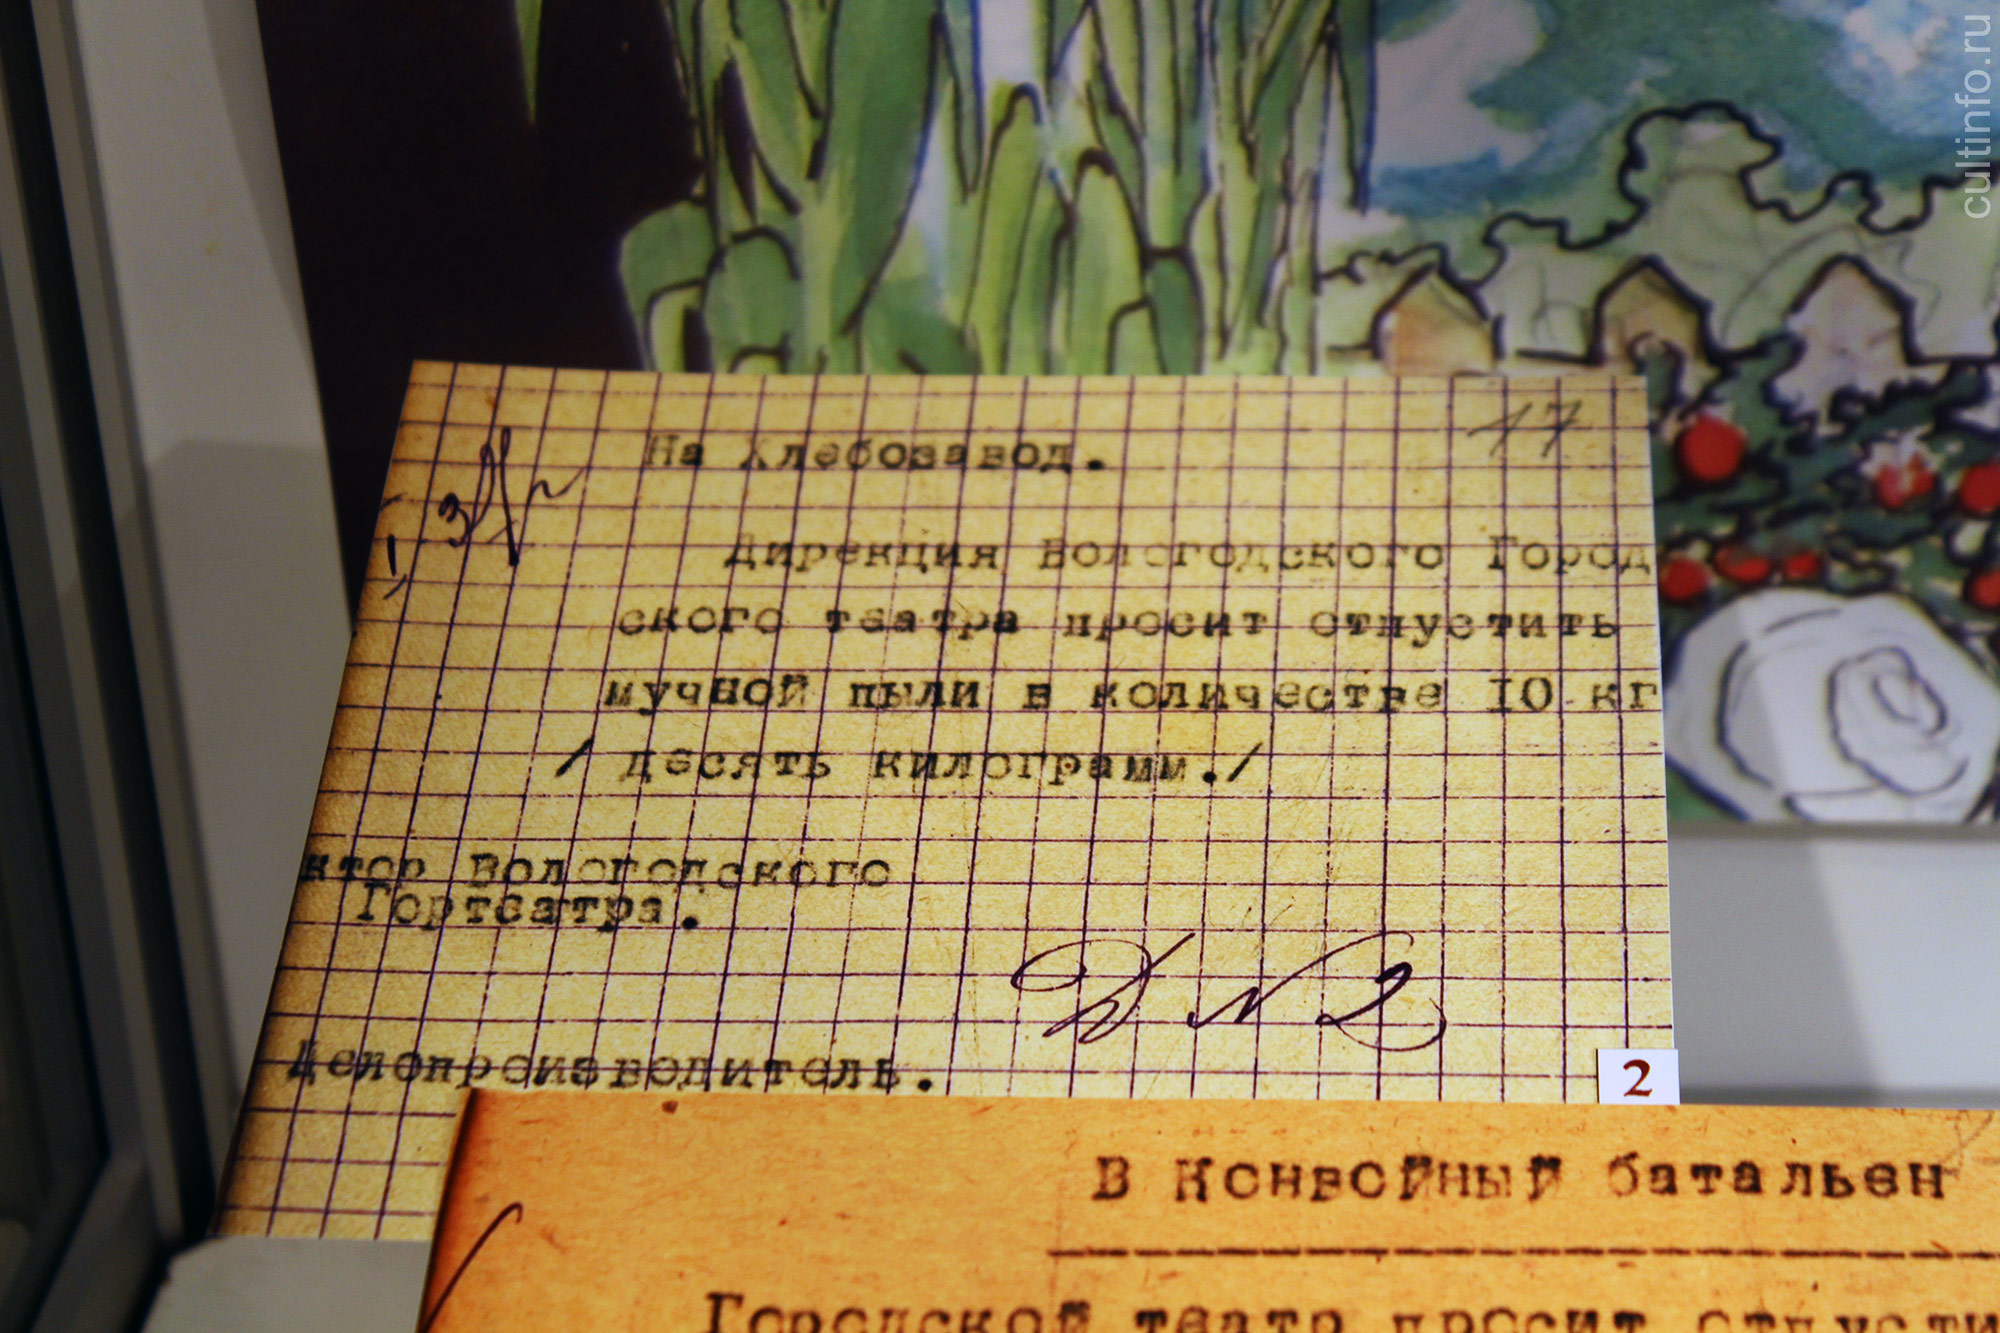 cultinfo.ru
17
На Хлебозавод.
Дирекция Вологодского Город
ского театра просит отпустить
мучной пыли в количестве 10 кг
/ десять килограмм./
ктор Вологодского
Гортеатра.
Делопроизводитель.
2
В Конвойный батальен
Городской театр просит отпусти